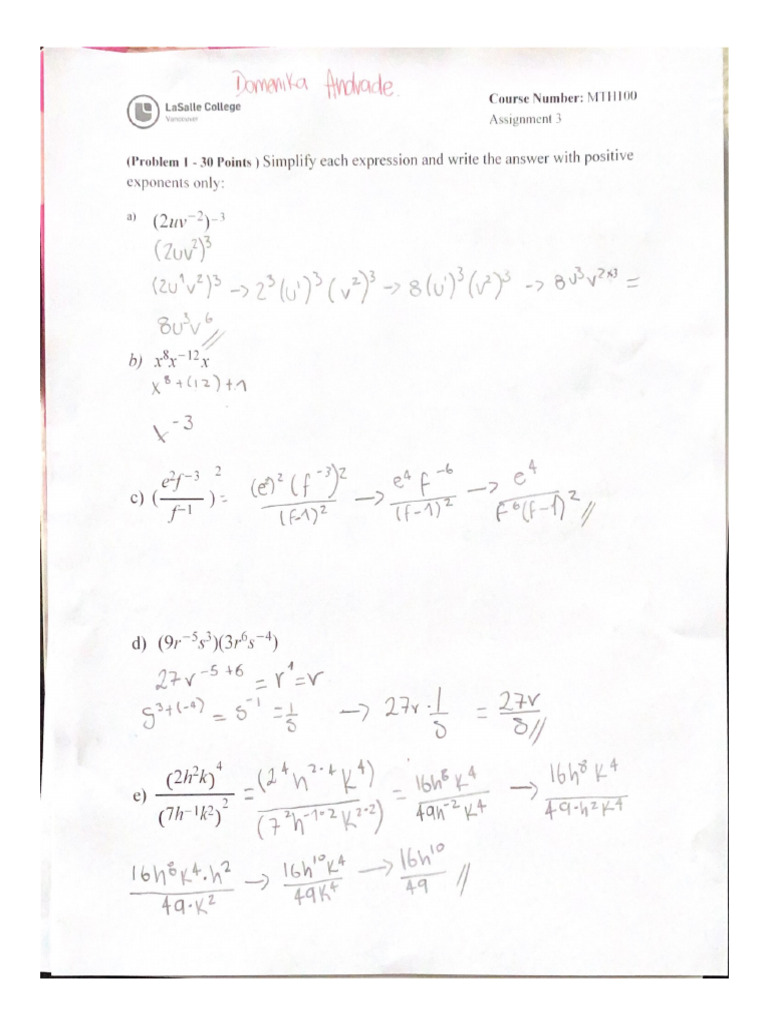 Domenika Andrade.
LaSalle College
Vancouver
Course Number: MTH100
Assignment 3
(Problem 1 - 30 Points ) Simplify each expression and write the answer with positive
exponents only:
a) (2uv⁻²)⁻³
(2uv²)³
(2u¹v²)³ -> 2³(u¹)³(v²)³ -> 8(u¹)³(v²)³ -> 8u³v²ˣ³ =
8u³v⁶ //
b) x⁸x⁻¹²x
x⁸⁺⁽¹²⁾⁺¹
x⁻³
c) (e²f⁻³/f⁻¹)² = (e²)²(f⁻³)²/(f-1)² -> e⁴f⁻⁶/(f-1)² -> e⁴/f⁶(f-1)² //
d) (9r⁻⁵s³)(3r⁶s⁻⁴)
27r⁻⁵⁺⁶ = r¹ = r
s³⁺⁽⁻⁴⁾ = s⁻¹ = 1/s -> 27r · 1/s = 27r/s //
e) (2h²k)⁴/(7h⁻¹k²)² = (2⁴h²·⁴k⁴)/(7²h⁻¹·²k²·²) = 16h⁸k⁴/49h⁻²k⁴ -> 16h⁸k⁴/49·h²k⁴
16h⁸k⁴·h²/49·k² -> 16h¹⁰k⁴/49k⁴ -> 16h¹⁰/49 //